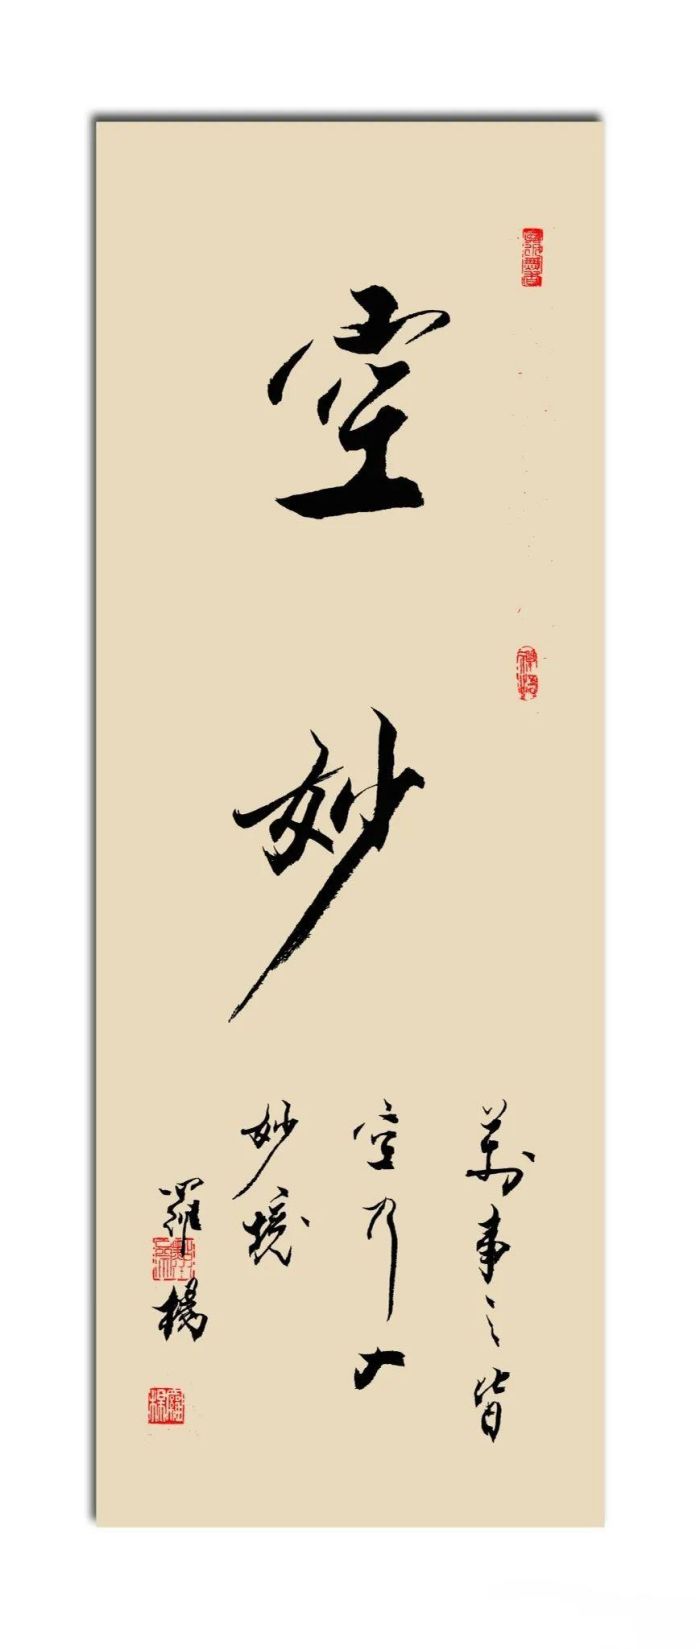 空妙
萬事之皆
空乃大
妙境
羅楊